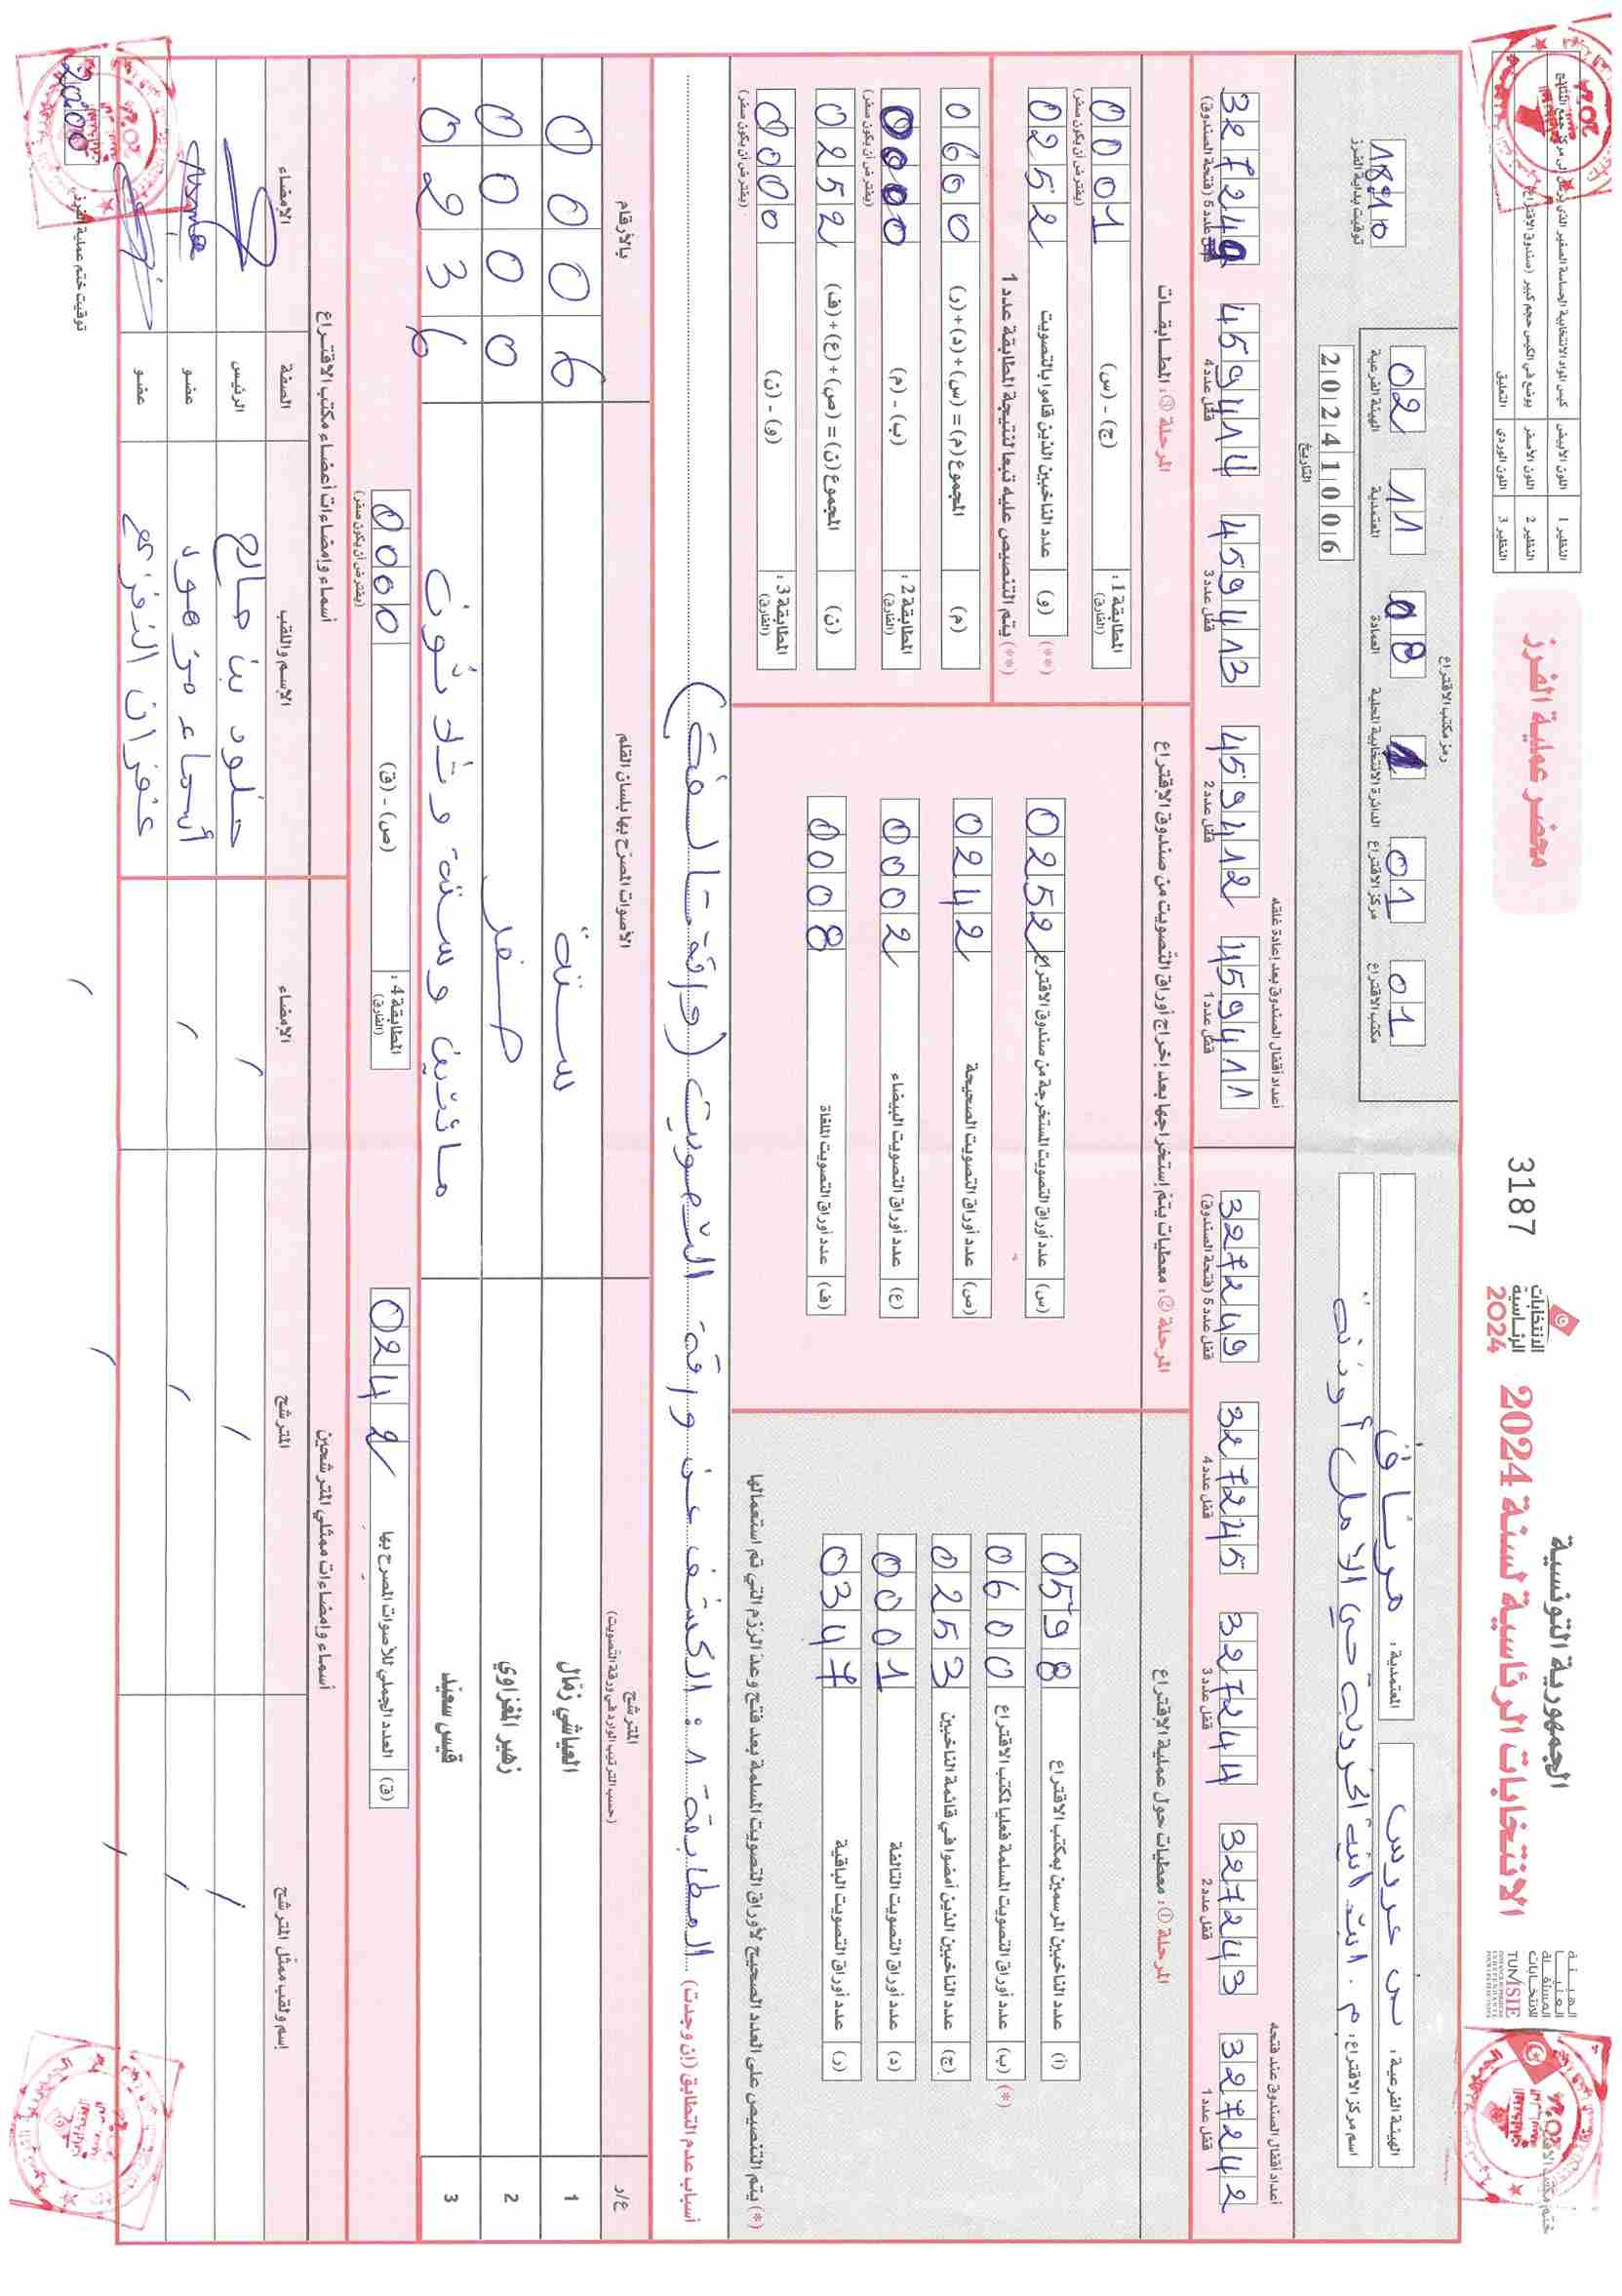 الجمهورية التونسية
الانتخابات الرئاسية لسنة 2024
الانتخابات
الرئاسية
2024
3187
محضر عملية الفرز
الهيئة
العليا
المستقلة
للانتخابات
TUNISIE
النظير 1 اللون الأبيض
النظير 2 اللون الأصفر
النظير 3 اللون الوردي التعليق
الهيئة الفرعية : بن عروس
المعتمدية : مرناق
اسم مركز الاقتراع : م. ابت. حي الأمل أوذنة
رمز مكتب الاقتراع
01 مكتب الاقتراع
01 مركز الاقتراع
1 الدائرة الانتخابية المحلية
08 العمادة
11 المعتمدية
02 الهيئة الفرعية
20241006
التاريخ
18H10
توقيت بداية الفرز
أعداد أقفال الصندوق عند فتحه
327242 قفل عدد 1
327243 قفل عدد 2
327244 قفل عدد 3
327245 قفل عدد 4
327249 قفل عدد 5 (فتحة الصندوق)
أعداد أقفال الصندوق بعد إعادة غلقه
459411 قفل عدد 1
459412 قفل عدد 2
459413 قفل عدد 3
459414 قفل عدد 4
327249 قفل عدد 5 (فتحة الصندوق)
المرحلة ① : معطيات حول عملية الاقتراع
(أ) عدد الناخبين المرسمين بمكتب الاقتراع 0598
(*) (ب) عدد أوراق التصويت المسلمة فعليا لمكتب الاقتراع 0600
(ج) عدد الناخبين الذين أمضوا في قائمة الناخبين 0253
(د) عدد أوراق التصويت التالفة 0001
(ر) عدد أوراق التصويت الباقية 0347
(*) يتم التنصيص على العدد الصحيح لأوراق التصويت المسلمة بعد فتح وعد الرزم التي تم استعمالها
المرحلة ② : معطيات يتم إستخراجها بعد إخراج أوراق التصويت من صندوق الاقتراع
(س) عدد أوراق التصويت المستخرجة من صندوق الاقتراع 0252
(ص) عدد أوراق التصويت الصحيحة 0242
(ع) عدد أوراق التصويت البيضاء 0002
(ف) عدد أوراق التصويت الملغاة 0008
المرحلة ③ : المطابقات
المطابقة 1 : (الفارق) (ج) - (س) 0001 (يفترض أن يكون صفر)
(**) (و) عدد الناخبين الذين قاموا بالتصويت 0252
(**) يتم التنصيص عليه تبعا لنتيجة المطابقة عدد 1
(م) المجموع (م) = (س) + (د) + (ر) 0600
المطابقة 2 : (الفارق) (ب) - (م) 0000 (يفترض أن يكون صفر)
(ن) المجموع (ن) = (ص) + (ع) + (ف) 0252
المطابقة 3 : (الفارق) (و) - (ن) 0000 (يفترض أن يكون صفر)
أسباب عدم التطابق (إن وجدت) المطابقة 1 : الكشف عن ورقة التصويت (ورقة تالفة)
ع/ر المترشح (حسب الترتيب الوارد في ورقة التصويت) الأصوات المصرّح بها بلسان القلم بالأرقام
1 العياشي زمّال ستة 0006
2 زهير المغزاوي صفر 0000
3 قيس سعيّد مائتين وستة وثلاثون 0236
(ق) العدد الجملي للأصوات المصرح بها 0242
المطابقة 4 : (الفارق) (ص) - (ق) 0000 (يفترض أن يكون صفر)
أسماء وإمضاءات ممثلي المترشحين
إسم ولقب ممثل المترشح المترشح الإمضاء
أسماء وإمضاءات أعضاء مكتب الاقتراع
الإسم واللقب الصفة الإمضاء
خلود بن صالح الرئيس
أسماء مزهود عضو
عضو
توقيت ختم عملية الفرز 20:00